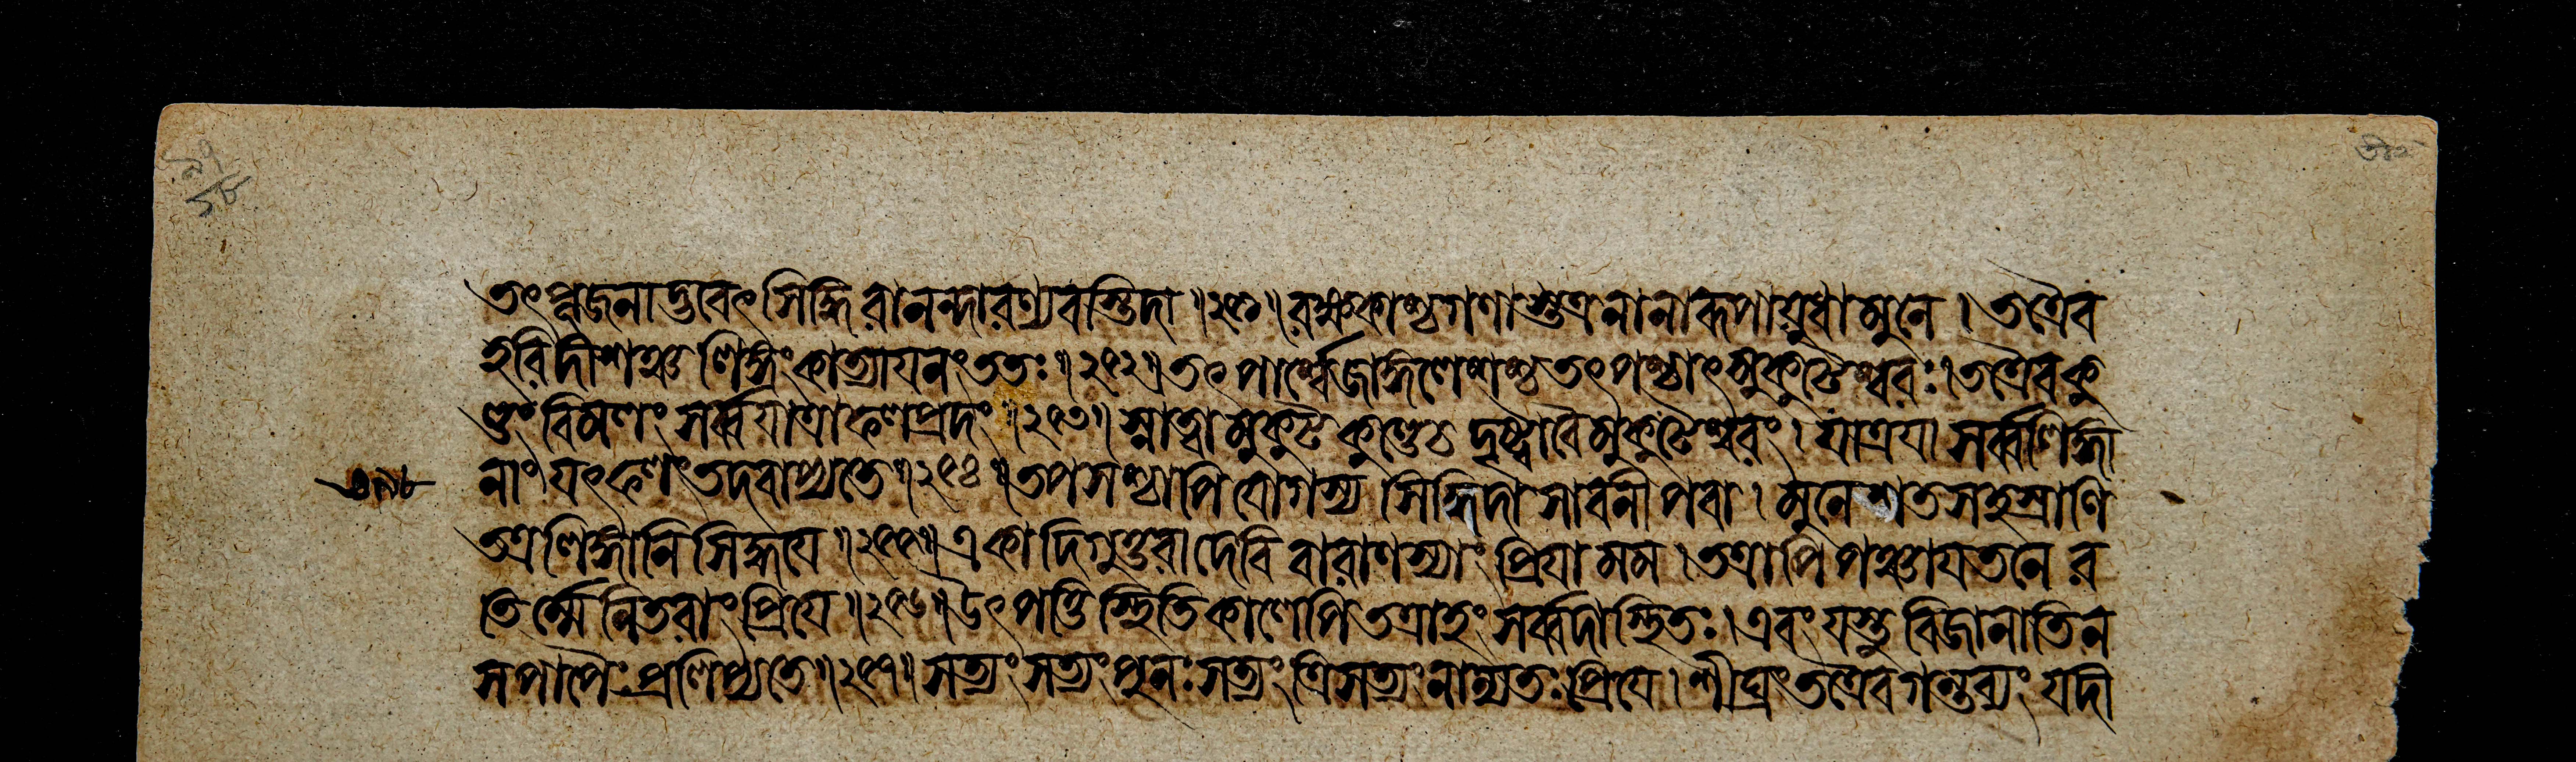 তৎপূজনাদ্ভবেৎ সিদ্ধিরানন্দারণ্যবস্তিদা ॥ ২৫১ ॥ রক্ষকাশ্চগণাস্তত্রনানারূপায়ুধা মুনে । তত্রৈব
হরিদীশঞ্চ লিঙ্গং কাত্যায়নং ততঃ ॥ ২৫২ ॥ তৎ পার্শ্বেজাঙ্গিলেশশ্চ তৎপশ্চাৎ মুকুটেশ্বরঃ । তত্রৈবকু
ণ্ডং বিমলং সর্ব্বযাত্রাফলপ্রদং ॥ ২৫৩ ॥ স্নাত্বা মুকুটকুণ্ডেচ দৃষ্ট্বাবৈমুকুটেশ্বরং । যাত্রয়া সর্ব্বলিঙ্গা
নাং যৎফলং তদবাপ্যতে ॥ ২৫৪ ॥ তপসশ্চাপি যোগস্য সিদ্ধিদা সাবনী পরা । মুনে শতসহস্রাণি
তত্রলিঙ্গানি সিদ্ধয়ে ॥ ২৫৫ ॥ একাদিগুত্তরাদেবি বারাণস্যাং প্রিয়া মম । তত্রাপি পঞ্চায়তনে র
তির্ম্মেনিতরাং প্রিয়ে ॥ ২৫৬ ॥ উৎপত্তিস্থিতিকালেপি তত্রাহং সর্ব্বদাস্থিতঃ । এবং যস্তু বিজানাতি ন
সপাপৈঃ প্রলিপ্যতে ॥ ২৫৭ ॥ সত্যং সত্যং পুনঃ সত্যং ত্রিসত্যং নান্যতঃ প্রিয়ে । শীঘ্রং তত্রৈবগন্তব্যং যদী
৩৯৮